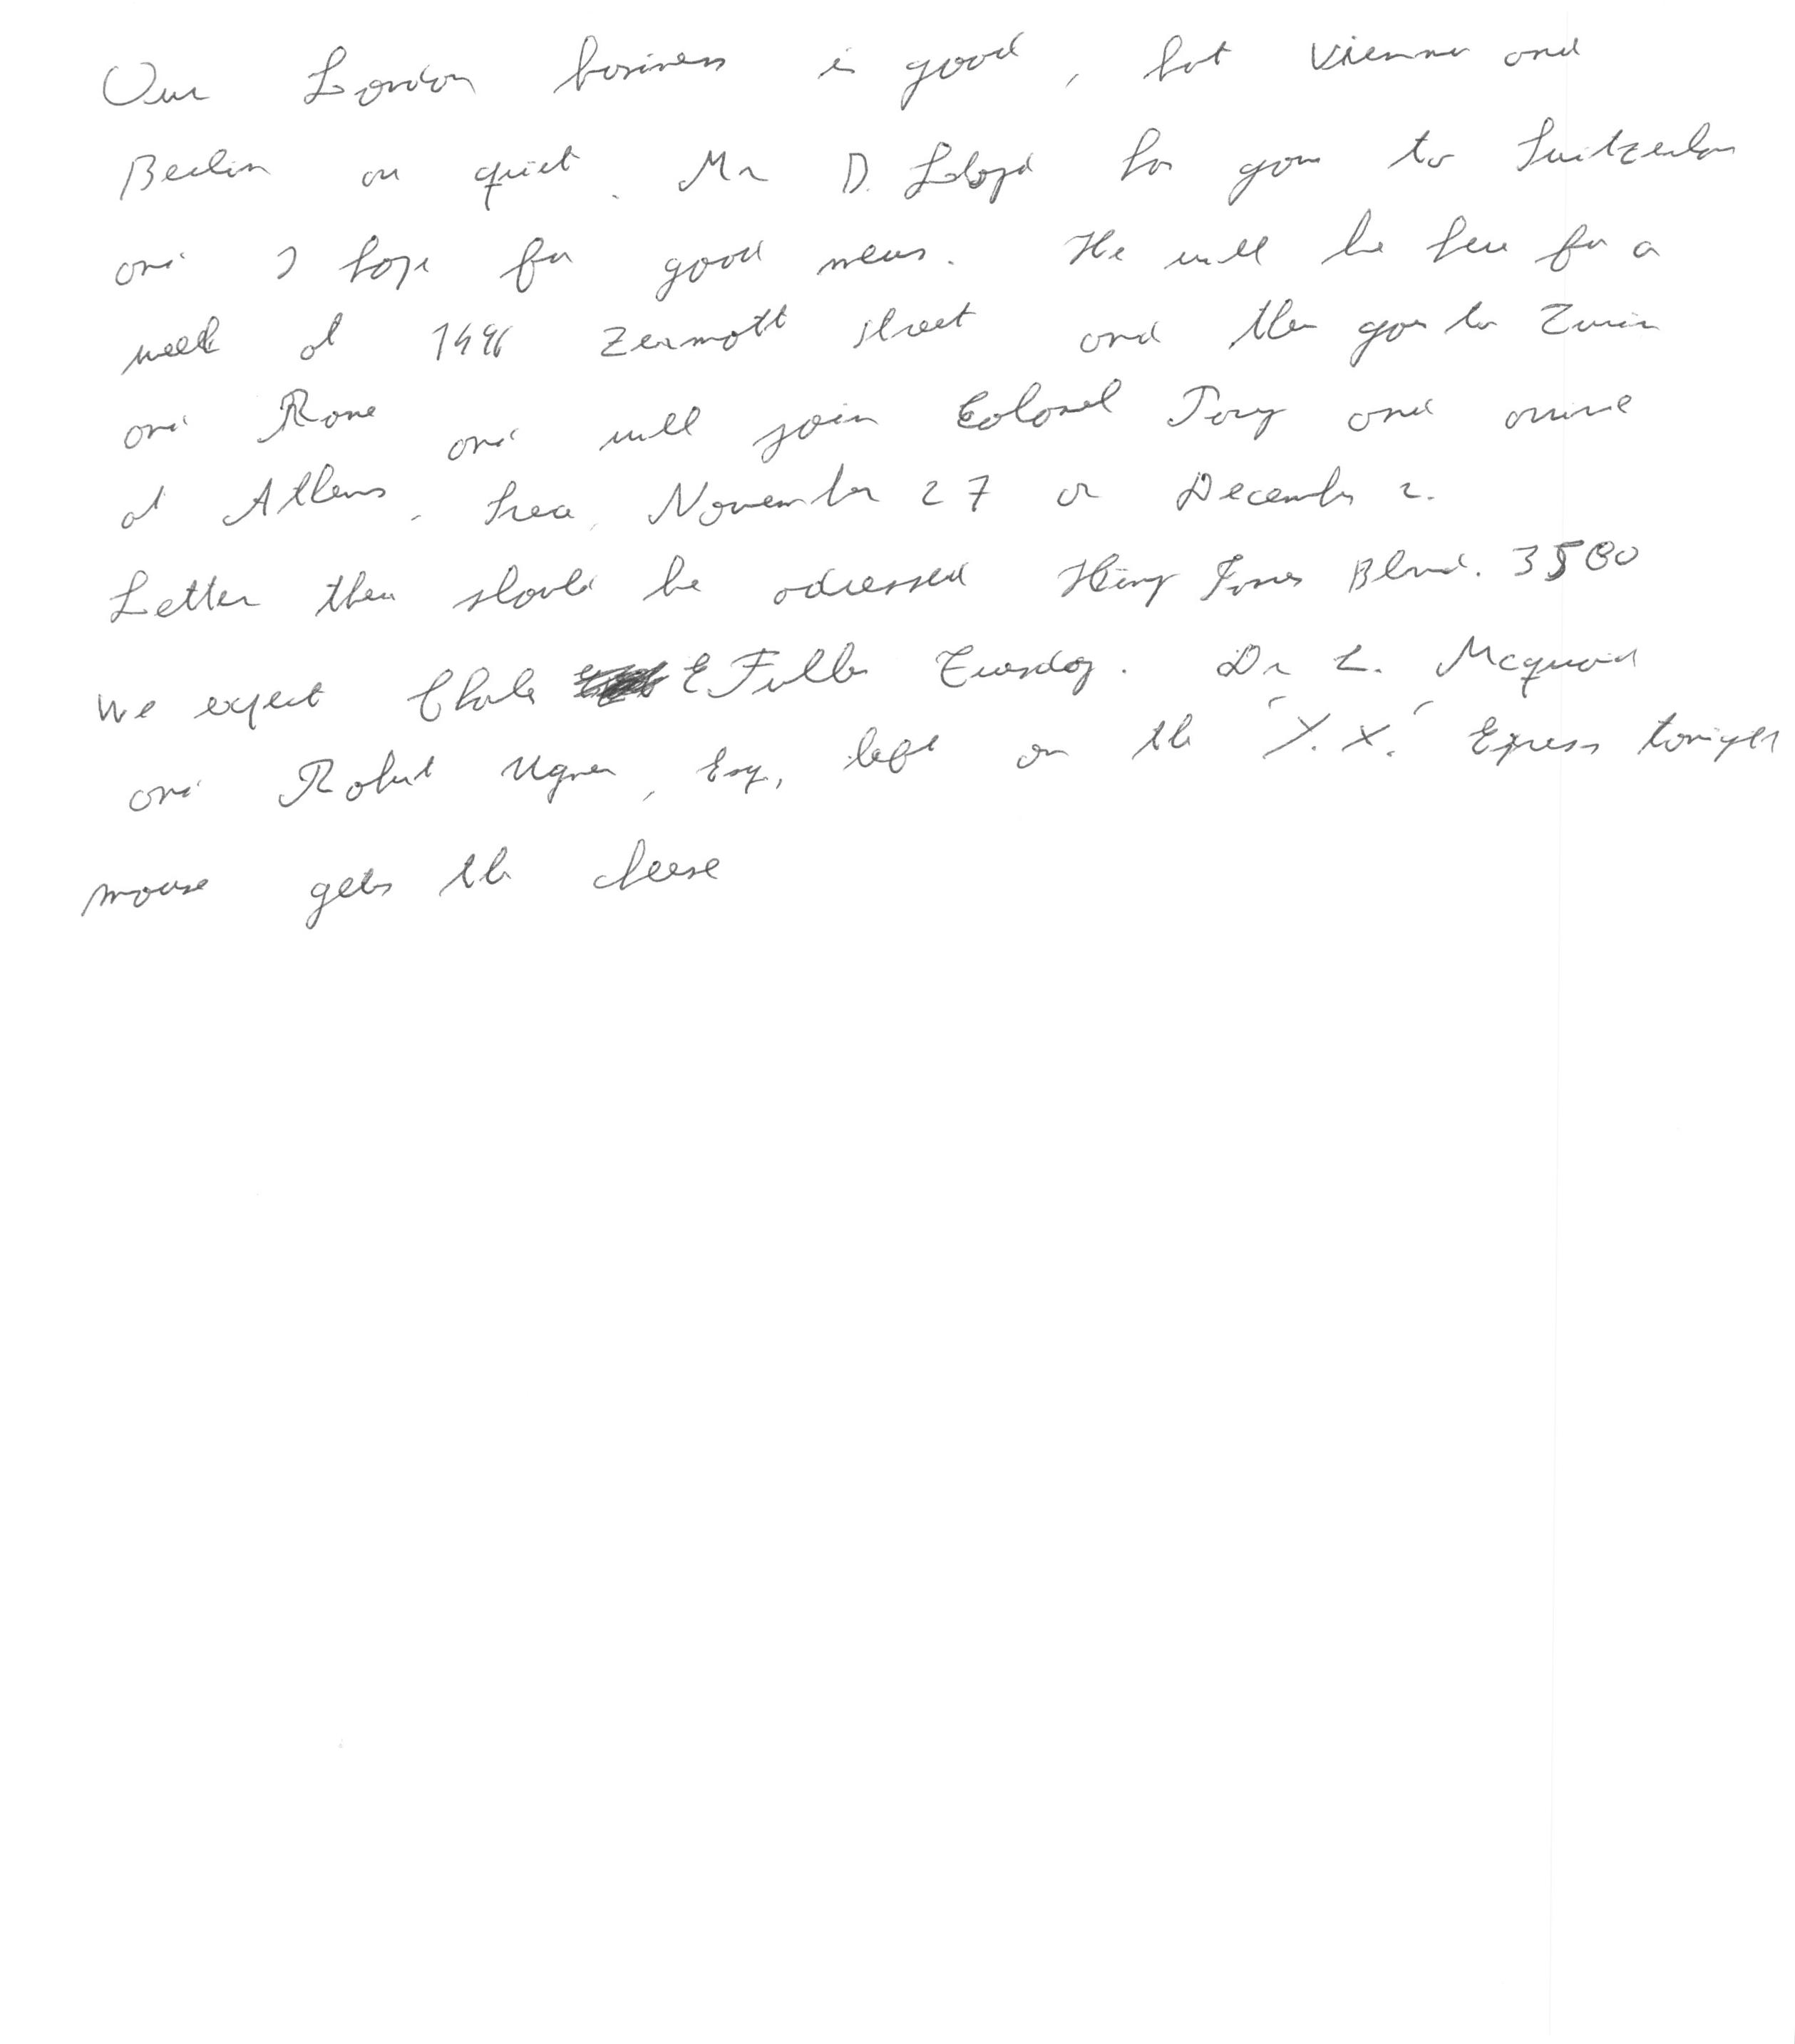 Our London business is good, but Vienna and
Berlin are quiet. Mr D. Lloyd has gone to Switzerland
and I hope for good news. He will be here for a
week at 1496 Zermott street and then goes to Turin
and Rome and will join Colonel Perry and arrive
at Athens, Greece, November 27 or December 2.
Letter there should be adressed King James Blvd. 3580
We expect Charles E Fuller Tuesday. Dr L. Mcquaid
and Robert Unger, Esq., left on the "Y.X." Express tonight
mouse gets the cheese